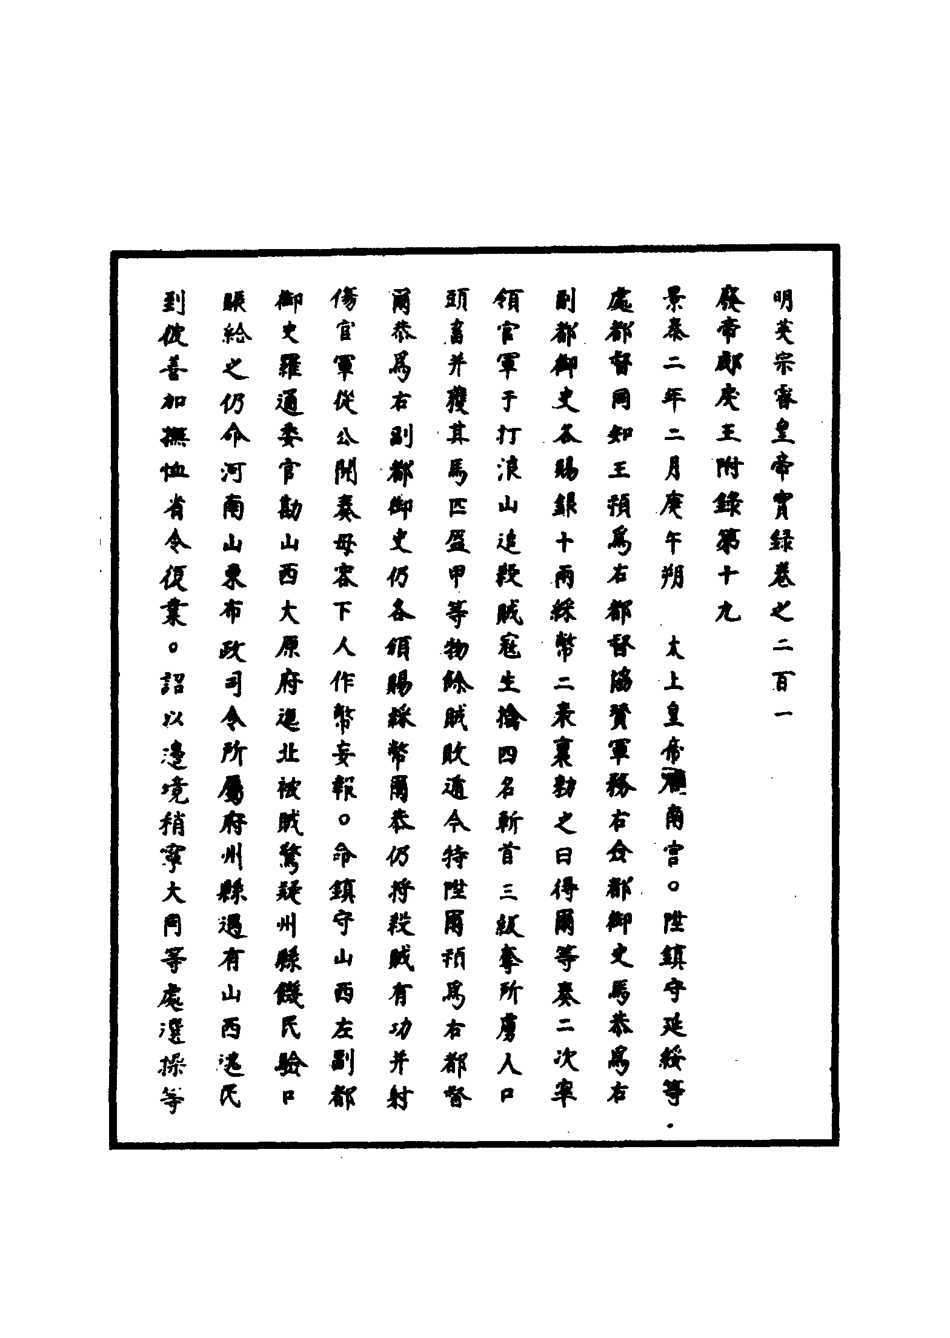 明英宗睿皇帝實錄卷之二百一
廢帝郕戾王附錄第十九
景泰二年二月庚午朔　太上皇帝在南宮○陞鎮守延綏等
處都督同知王禎為右都督協贊軍務右僉都御史馬恭為右
副都御史各賜銀十兩綵幣二表裏勑之曰得爾等奏二次率
領官軍于打浪山追殺賊寇生擒四名斬首三級奪所虜人口
頭畜并獲其馬匹盔甲等物餘賊敗遁今特陞爾禎為右都督
爾恭為右副都御史仍各頒賜綵幣爾恭仍将殺賊有功并射
傷官軍從公開奏毋容下人作幣妄報○命鎮守山西左副都
御史羅通委官勘山西大原府迤北被賊驚疑州縣饑民驗口
賑給之仍命河南山東布政司令所屬府州縣遇有山西逃民
到彼善加撫恤省令復業○詔以邊境稍寧大同等處選操等